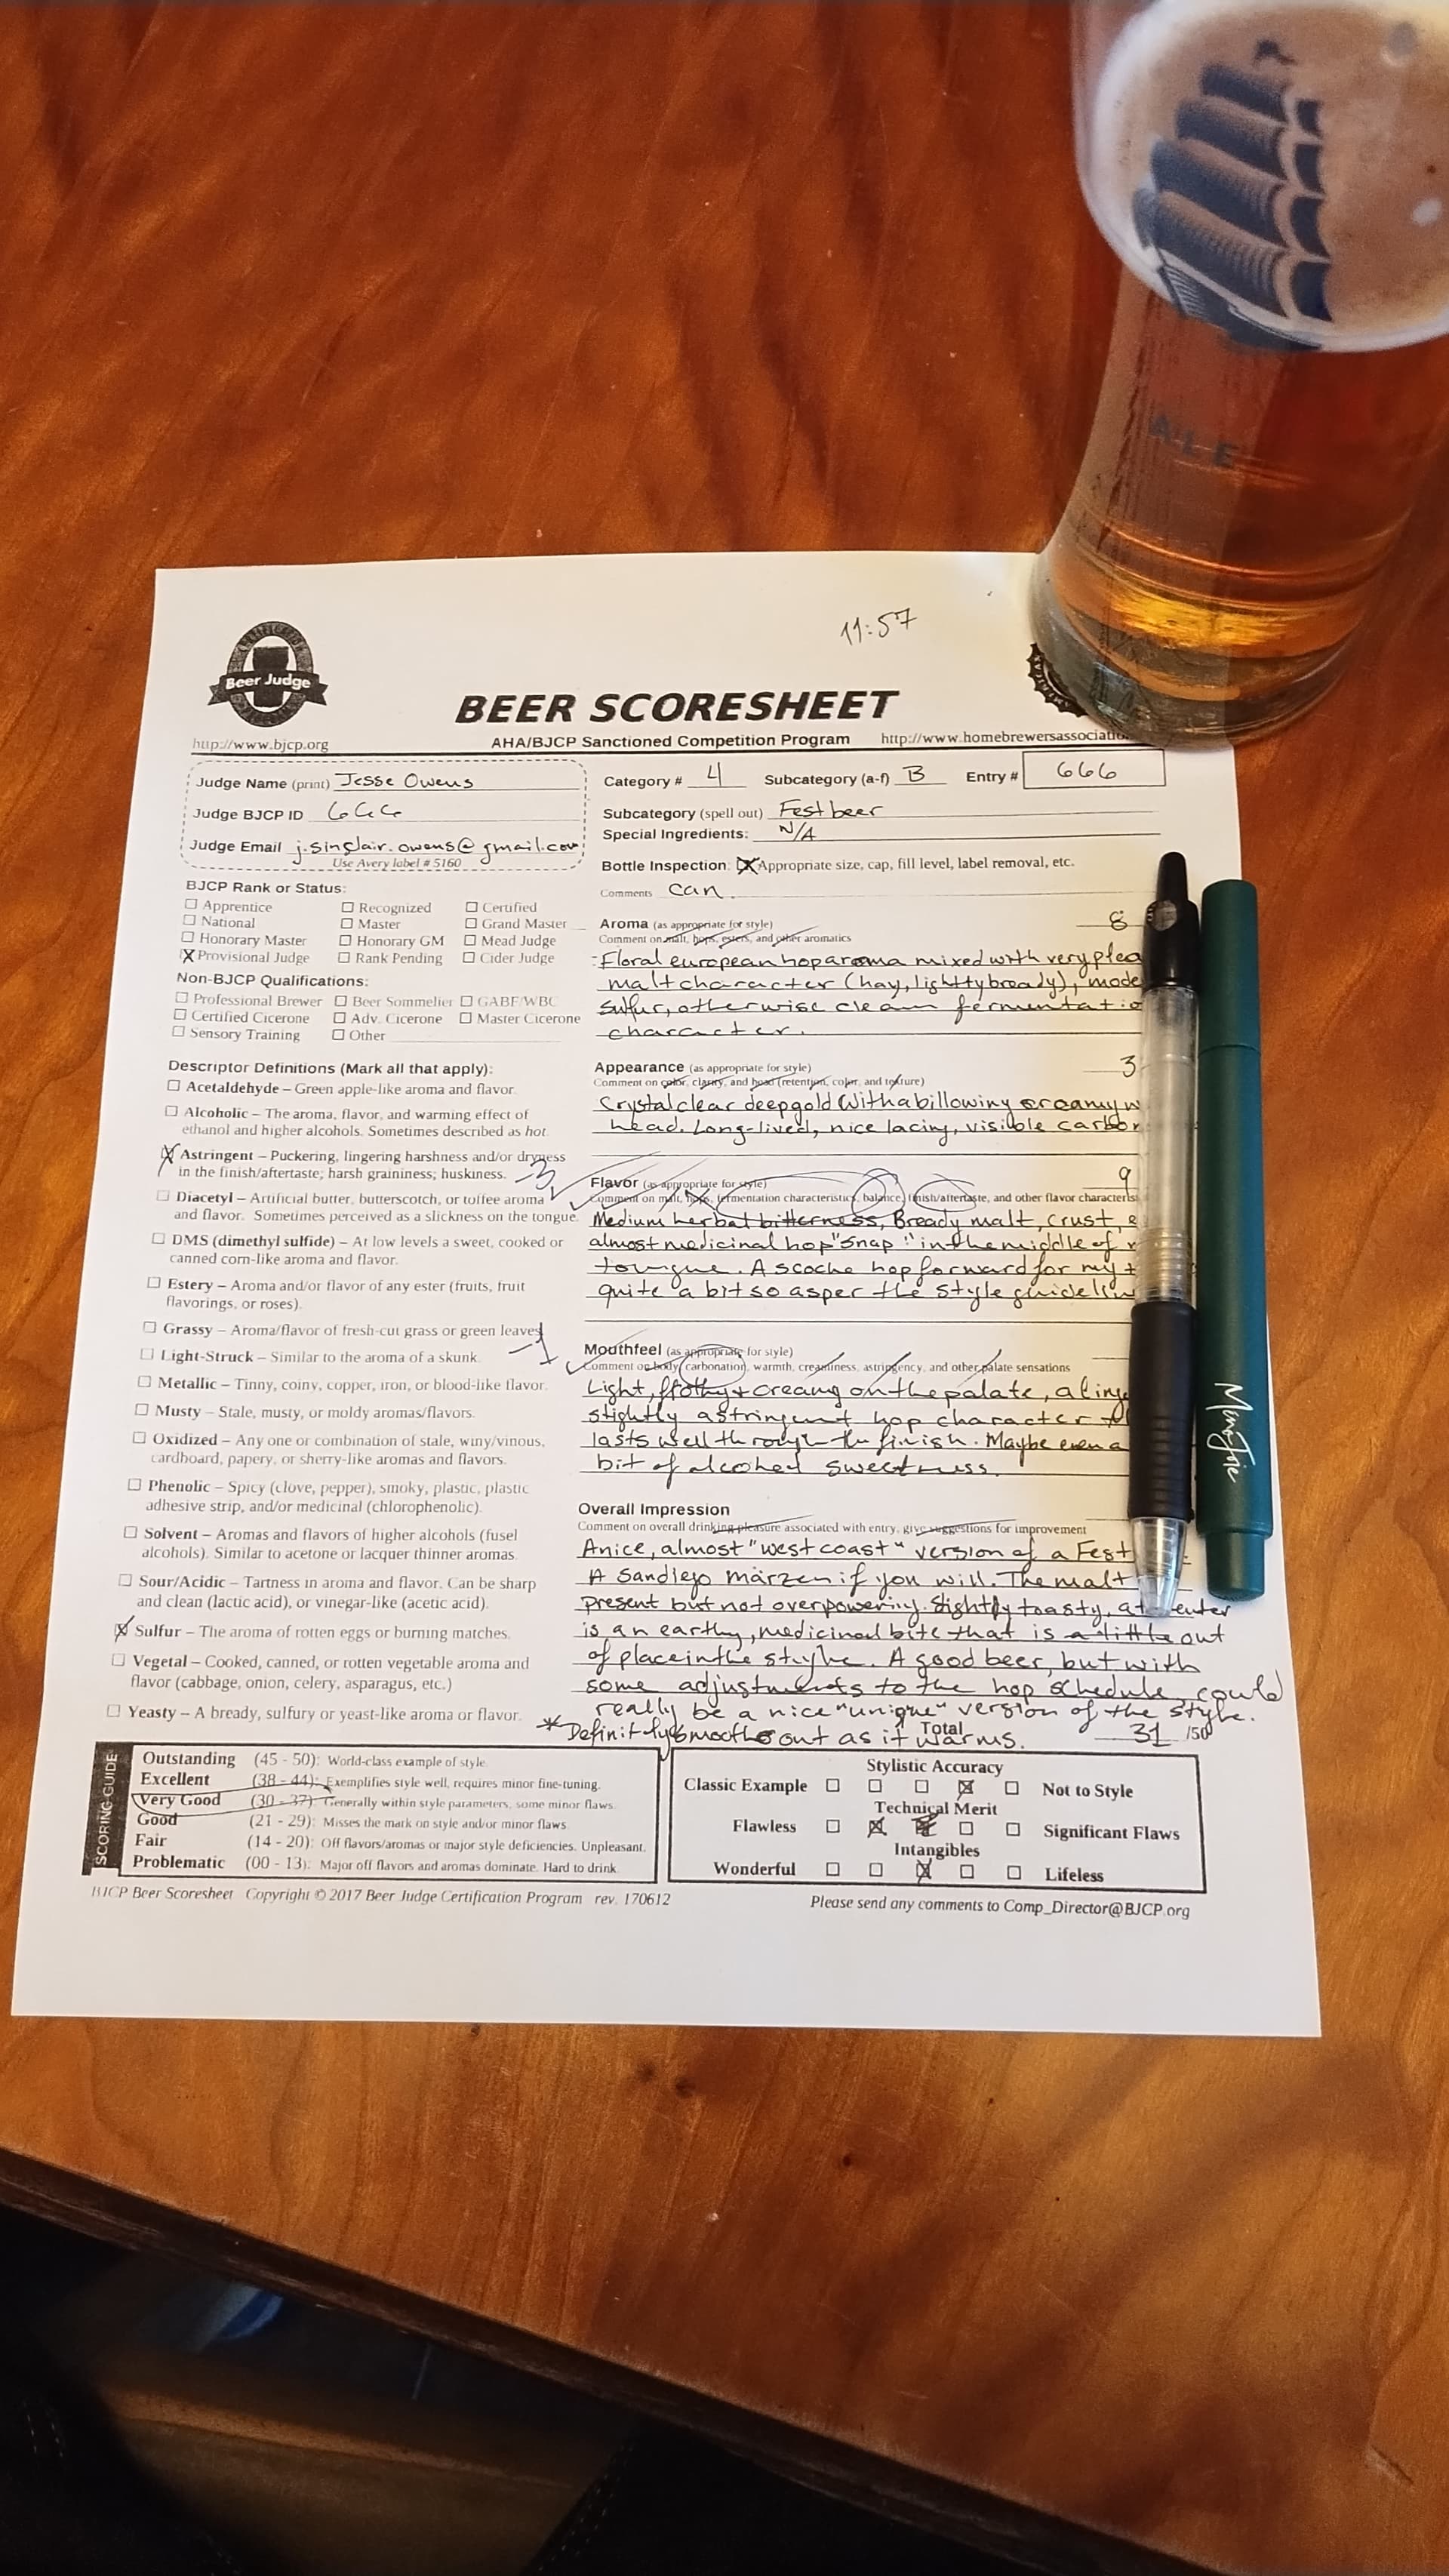 ALE
11:57
Beer Judge
BEER SCORESHEET
http://www.bjcp.org
AHA/BJCP Sanctioned Competition Program
http://www.homebrewersassociatio
Judge Name (print) Jesse Owens
Judge BJCP ID 666
Judge Email j.sinclair.owens@gmail.com
Use Avery label # 5160
Category # 4 Subcategory (a-f) B Entry # 666
Subcategory (spell out) Festbeer
Special Ingredients: N/A
Bottle Inspection: Appropriate size, cap, fill level, label removal, etc.
Comments can.
BJCP Rank or Status:
Apprentice Recognized Certified
National Master Grand Master
Honorary Master Honorary GM Mead Judge
X Provisional Judge Rank Pending Cider Judge
Non-BJCP Qualifications:
Professional Brewer Beer Sommelier GABF/WBC
Certified Cicerone Adv. Cicerone Master Cicerone
Sensory Training Other
Descriptor Definitions (Mark all that apply):
Acetaldehyde – Green apple-like aroma and flavor.
Alcoholic – The aroma, flavor, and warming effect of
ethanol and higher alcohols. Sometimes described as hot.
X Astringent – Puckering, lingering harshness and/or dryness
in the finish/aftertaste; harsh graininess; huskiness.
-3
Diacetyl – Artificial butter, butterscotch, or toffee aroma
and flavor. Sometimes perceived as a slickness on the tongue.
DMS (dimethyl sulfide) – At low levels a sweet, cooked or
canned corn-like aroma and flavor.
Estery – Aroma and/or flavor of any ester (fruits, fruit
flavorings, or roses).
Grassy – Aroma/flavor of fresh-cut grass or green leaves
-1
Light-Struck – Similar to the aroma of a skunk.
Metallic – Tinny, coiny, copper, iron, or blood-like flavor.
Musty – Stale, musty, or moldy aromas/flavors.
Oxidized – Any one or combination of stale, winy/vinous,
cardboard, papery, or sherry-like aromas and flavors.
Phenolic – Spicy (clove, pepper), smoky, plastic, plastic
adhesive strip, and/or medicinal (chlorophenolic).
Solvent – Aromas and flavors of higher alcohols (fusel
alcohols). Similar to acetone or lacquer thinner aromas.
Sour/Acidic – Tartness in aroma and flavor. Can be sharp
and clean (lactic acid), or vinegar-like (acetic acid).
X Sulfur – The aroma of rotten eggs or burning matches.
Vegetal – Cooked, canned, or rotten vegetable aroma and
flavor (cabbage, onion, celery, asparagus, etc.)
Yeasty – A bready, sulfury or yeast-like aroma or flavor.
Aroma (as appropriate for style) 8
Comment on malt, hops, esters, and other aromatics
Floral european hop aroma mixed with very plea
malt character (hay, lightly bready), mode
sulfur, otherwise clean fermentatio
character.
Appearance (as appropriate for style) 3
Comment on color, clarity, and head (retention, color, and texture)
Crystal clear deep gold with a billowing creamy w
head. Long-lived, nice lacing, visible carbon
Flavor (as appropriate for style) 9
Comment on malt, hops, fermentation characteristics, balance, finish/aftertaste, and other flavor characterist
Medium herbal bitterness, Bready malt, crust,
almost medicinal hop "snap" in the middle of
tongue. A scoche hop forward for my t
quite a bit so as per the style guidelin
Mouthfeel (as appropriate for style)
Comment on body, carbonation, warmth, creaminess, astringency, and other palate sensations
Light, frothy + creamy on the palate, a linge
slightly astringent hop character
lasts well through the finish. Maybe even a
bit of alcohol sweetness.
Overall Impression
Comment on overall drinking pleasure associated with entry, give suggestions for improvement
A nice, almost "west coast" version of a Fest
A San diego märzen if you will. The malt
present but not overpowering. Slightly toasty, at
is an earthy, medicinal bite that is a little out
of place in the style. A good beer, but with
some adjustments to the hop schedule, could
really be a nice "unique" version of the style.
*Definitly smoothes out as it warms.
Total 31 /50
SCORING GUIDE
Outstanding (45 - 50): World-class example of style.
Excellent (38 - 44): Exemplifies style well, requires minor fine-tuning.
Very Good (30 - 37): Generally within style parameters, some minor flaws.
Good (21 - 29): Misses the mark on style and/or minor flaws.
Fair (14 - 20): Off flavors/aromas or major style deficiencies. Unpleasant.
Problematic (00 - 13): Major off flavors and aromas dominate. Hard to drink.
Stylistic Accuracy
Classic Example Not to Style
Technical Merit
Flawless Significant Flaws
Intangibles
Wonderful Lifeless
BJCP Beer Scoresheet Copyright © 2017 Beer Judge Certification Program rev. 170612
Please send any comments to Comp_Director@BJCP.org